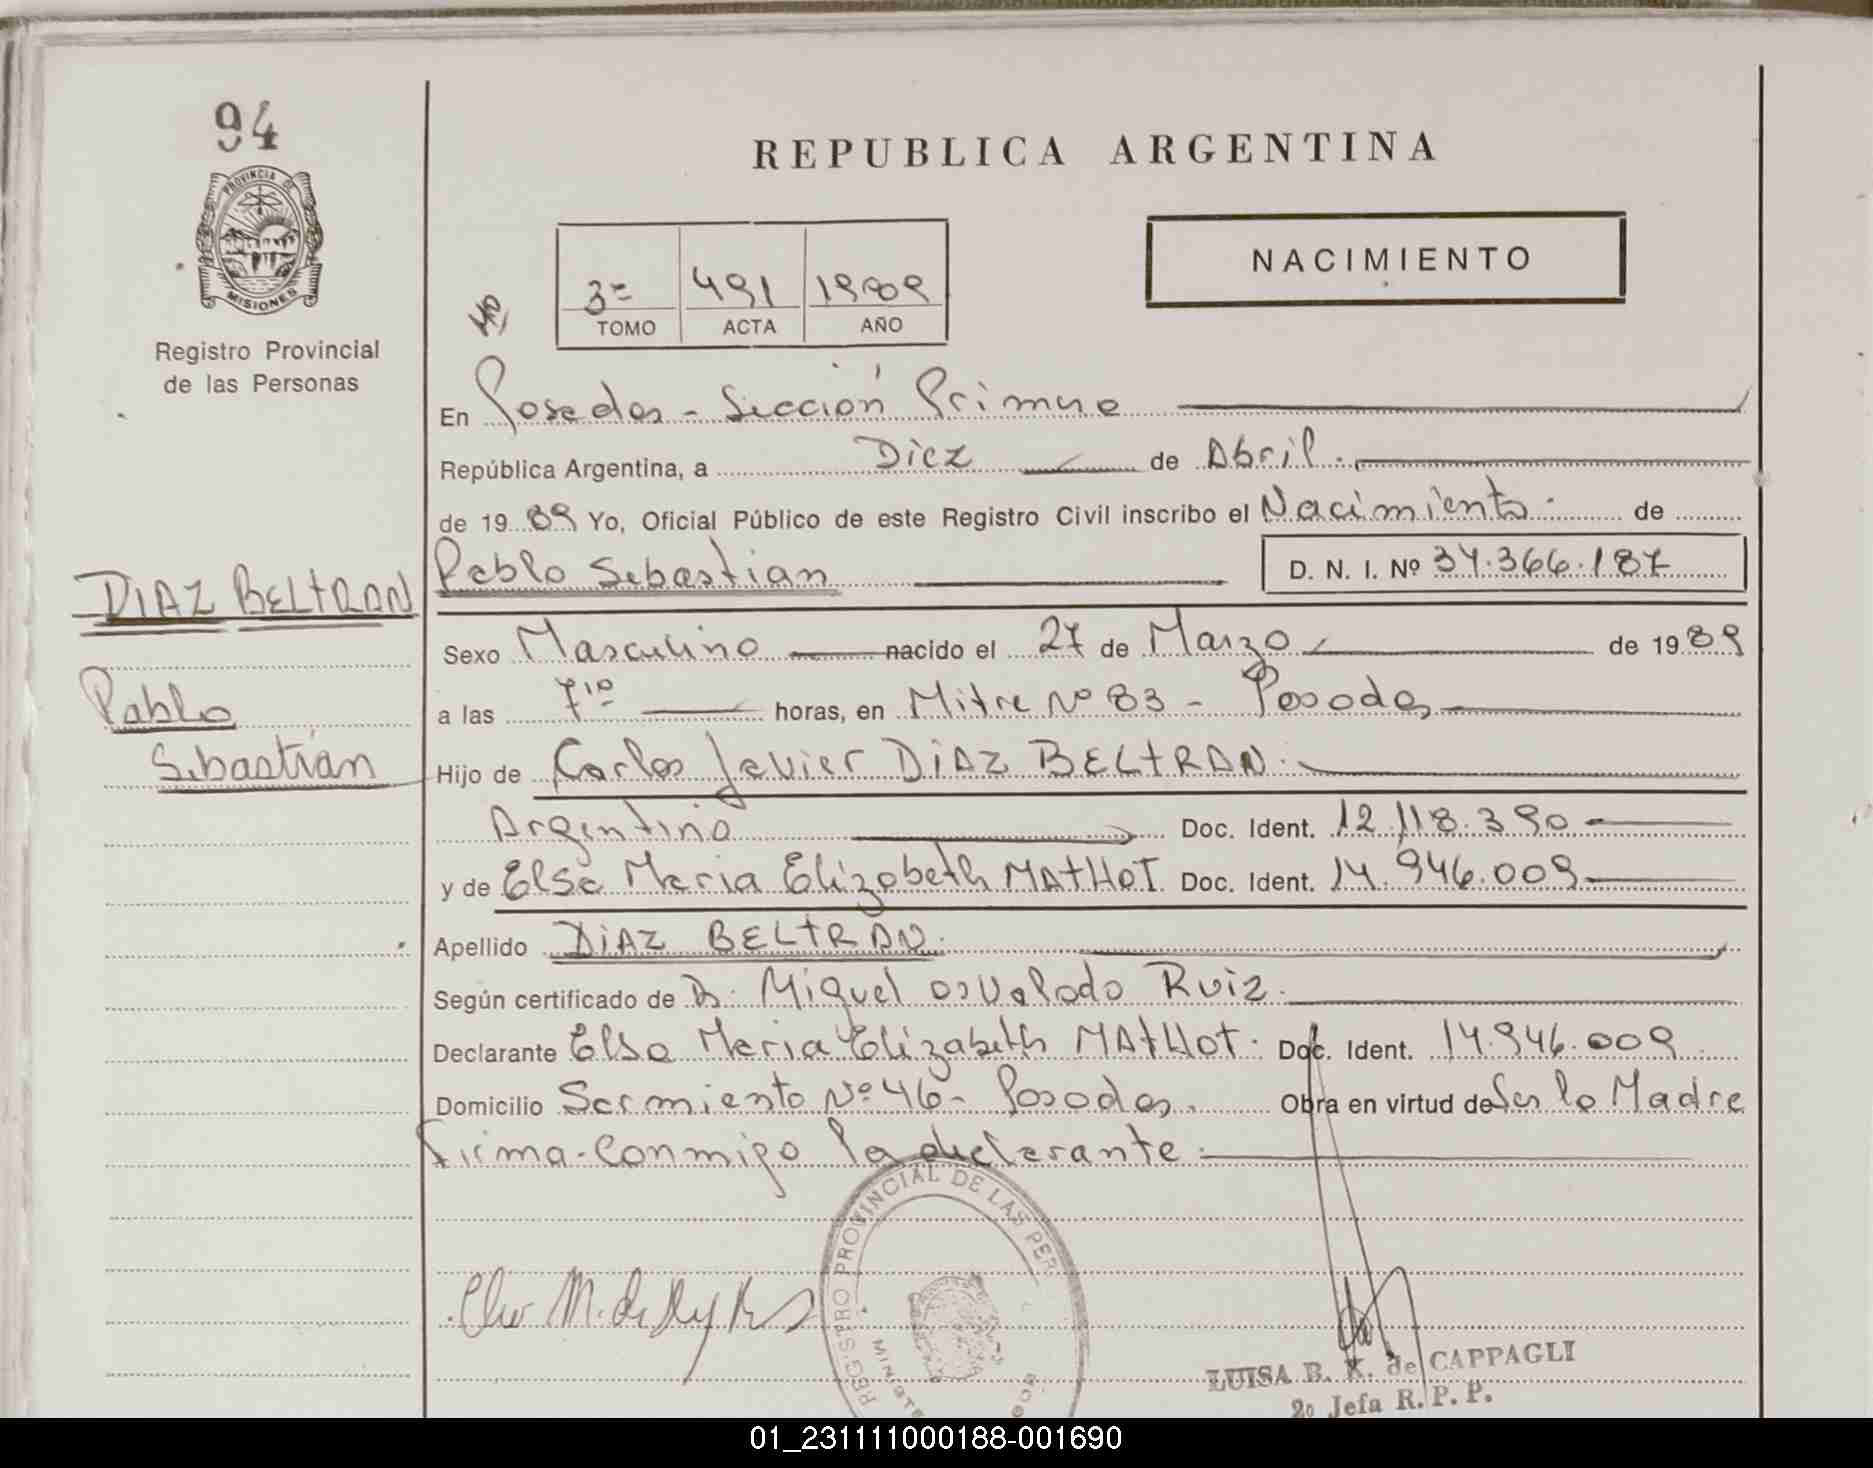 94
PROVINCIA DE
MISIONES
Registro Provincial
de las Personas
DIAZ BELTRAN
Pablo
Sebastian
REPUBLICA ARGENTINA
NACIMIENTO
3º 491 1989
TOMO ACTA AÑO
En Posadas - Sección Primera
República Argentina, a Diez de Abril.
de 1989 Yo, Oficial Público de este Registro Civil inscribo el Nacimiento de
Pablo Sebastian D. N. I. Nº 34.366.187
Sexo Masculino nacido el 27 de Marzo de 1989
a las 7'10 horas, en Mitre Nº 83 - Posadas
Hijo de Carlos Javier DIAZ BELTRAN.
Argentino Doc. Ident. 12.118.390
y de Elsa Maria Elizabeth MATHOT Doc. Ident. 14.946.009
Apellido DIAZ BELTRAN.
Según certificado de Dr. Miguel Osvaldo Ruiz.
Declarante Elsa Maria Elizabeth MATHOT. Doc. Ident. 14.946.009
Domicilio Sarmiento Nº 46 - Posadas. Obra en virtud de Ser la Madre
Firma Conmigo la declarante.
REGISTRO PROVINCIAL DE LAS PER
LUISA B. K. de CAPPAGLI
2º Jefa R. P. P.
01_231111000188-001690